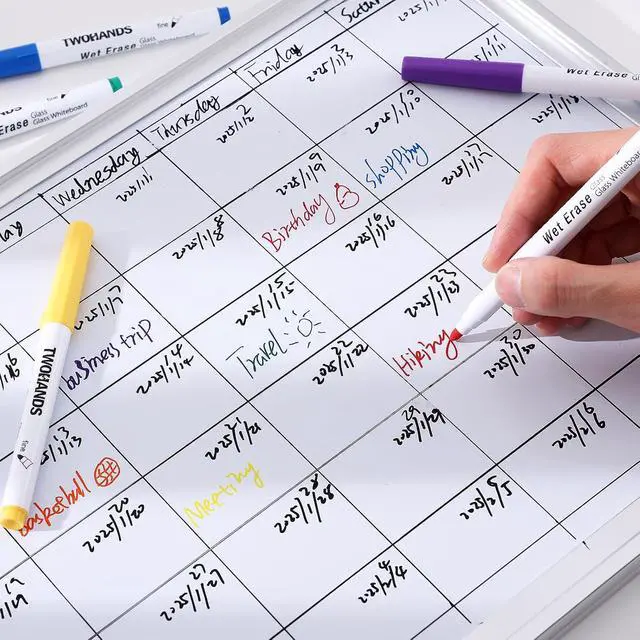 TWOHANDS
fine
Wet Erase
Glass
Glass Whiteboard
Erase
Glass
Glass Whiteboard
Wet Erase
Wednesday
Thursday
Friday
2025/1/1
2025/1/2
2025/1/3
2025/1/7
business trip
2025/1/8
2025/1/9
Birthday
2025/1/10
shopping
1/11
2025/1/13
basketball
2025/1/14
2025/1/15
Travel
2025/1/16
2025/1/17
2025/1/20
2025/1/21
Meeting
2025/1/22
2025/1/23
Hiking
2025/1/27
2025/1/28
2025/1/29
2025/1/30
2025/2/4
2025/2/5
2025/2/6
TWOHANDS
fine
Wet Erase
Glass
Glass Whiteboard